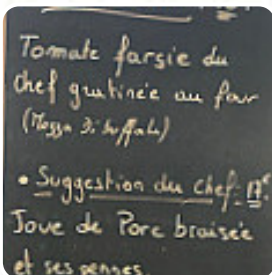 Tomate farsie du
chef gratinée au four
(Mozza Di Buffala)
• Suggestion du chef: 17€
Joue de Porc braisée
et ses pennes